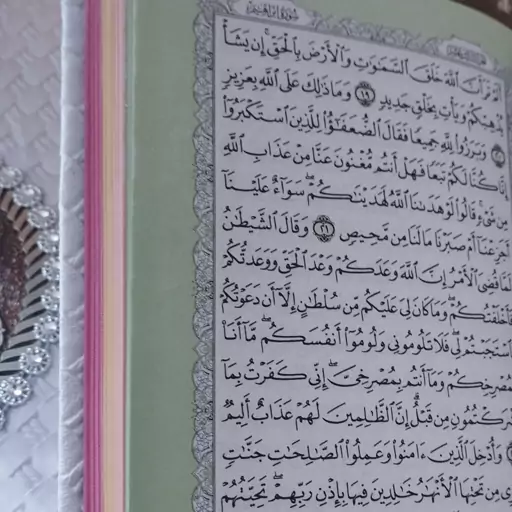 سورة إبراهيم
ألم تر أن الله خلق السموات والأرض بالحق إن يشأ
يذهبكم ويأت بخلق جديد ١٩ وما ذلك على الله بعزيز
٢٠ وبرزوا لله جميعا فقال الضعفؤا للذين استكبروا
إنا كنا لكم تبعا فهل أنتم مغنون عنا من عذاب الله
من شىء قالوا لو هدىنا الله لهدينكم سواء علينا
أجزعنا أم صبرنا ما لنا من محيص ٢١ وقال الشيطن
لما قضى الأمر إن الله وعدكم وعد الحق ووعدتكم
فأخلفتكم وما كان لى عليكم من سلطن إلا أن دعوتكم
فاستجبتم لى فلا تلومونى ولوموا أنفسكم ما أنا
بمصرخكم وما أنتم بمصرخى إنى كفرت بما
أشركتمون من قبل إن الظلمين لهم عذاب أليم
وأدخل الذين ءامنوا وعملوا الصلحت جنت
تجرى من تحتها الأنهر خلدين فيها بإذن ربهم تحيتهم